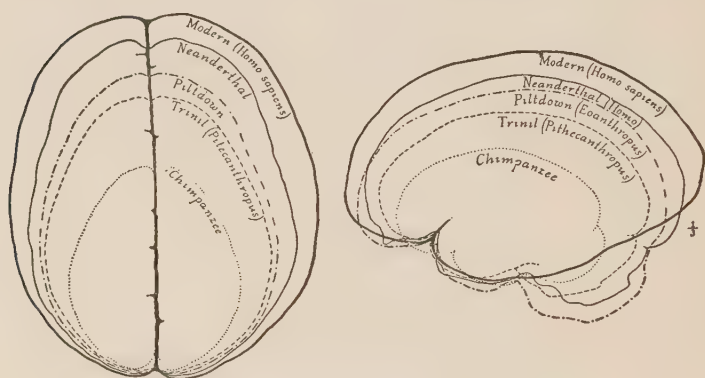 Modern (Homo sapiens)
Neanderthal
Piltdown
Trinil (Pithecanthropus)
Chimpanzee
Modern (Homo sapiens)
Neanderthal (Homo)
Piltdown (Eoanthropus)
Trinil (Pithecanthropus)
Chimpanzee
⅓